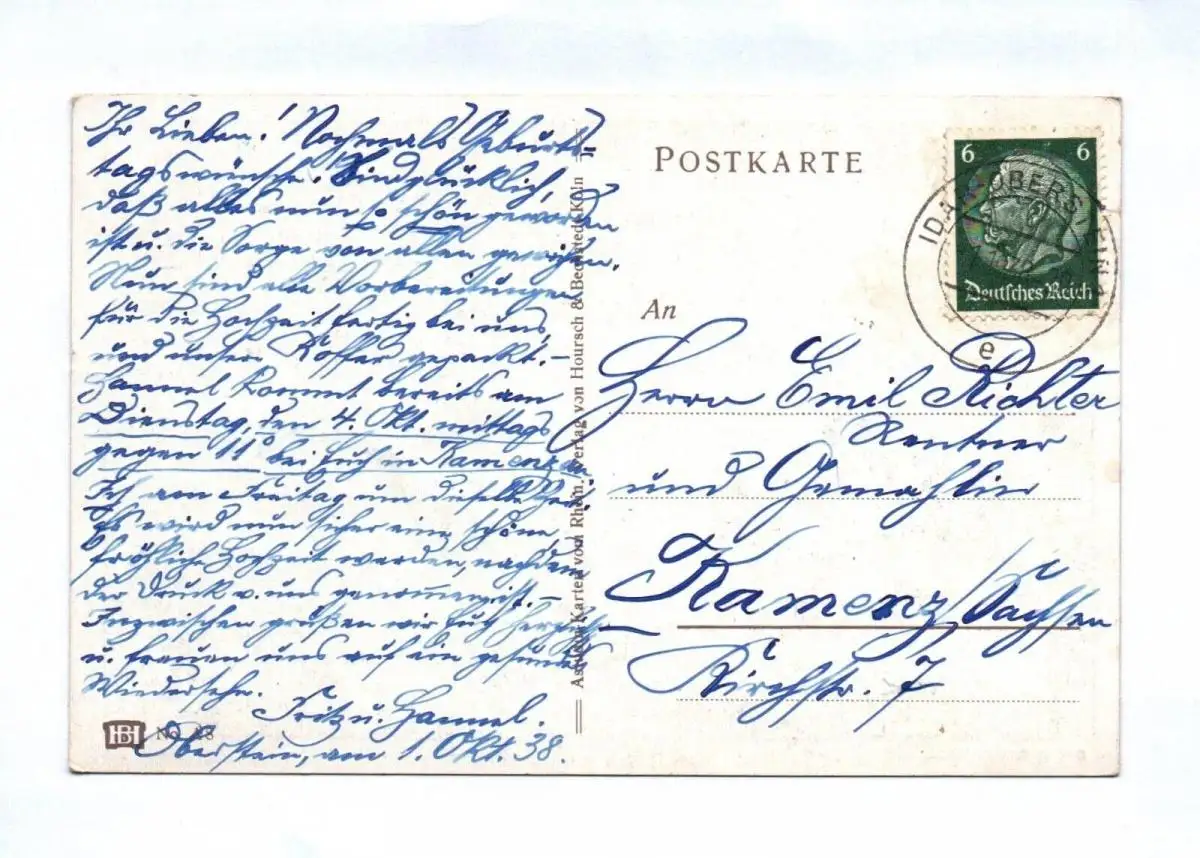 Ihr Lieben! Nochmals Geburts-
tagswünsche. Sind glücklich,
daß alles nun so schön geworden
ist u. die Sorge von allen gewichen.
Nun sind alle Vorbereitungen
für die Hochzeit fertig bei uns
und unsere Koffer gepackt. –
Hannel kommt bereits am
Dienstag, den 4. Okt. mittags
gegen 11° bei Euch in Kamenz an
Ich am Freitag um dieselbe Zeit.
Es wird nun sicher eine schöne,
fröhliche Hochzeit werden, nachdem
der Druck v. uns genommen ist. –
Inzwischen grüßen wir Euch herzlichst
u. freuen uns auf ein gesundes
Wiedersehn.
Fritz u. Hannel.
Oberstein, am 1. Okt. 38.
HB No. 28
Karten vom Rhein. Verlag von Hoursch & Bechstedt, Köln
POSTKARTE
6 6
Deutsches Reich
IDAR-OBERSTEIN
e
An
Herrn Emil Richter
Rentner
und Gemahlin
Kamenz/Sachsen
Kirchstr. 7